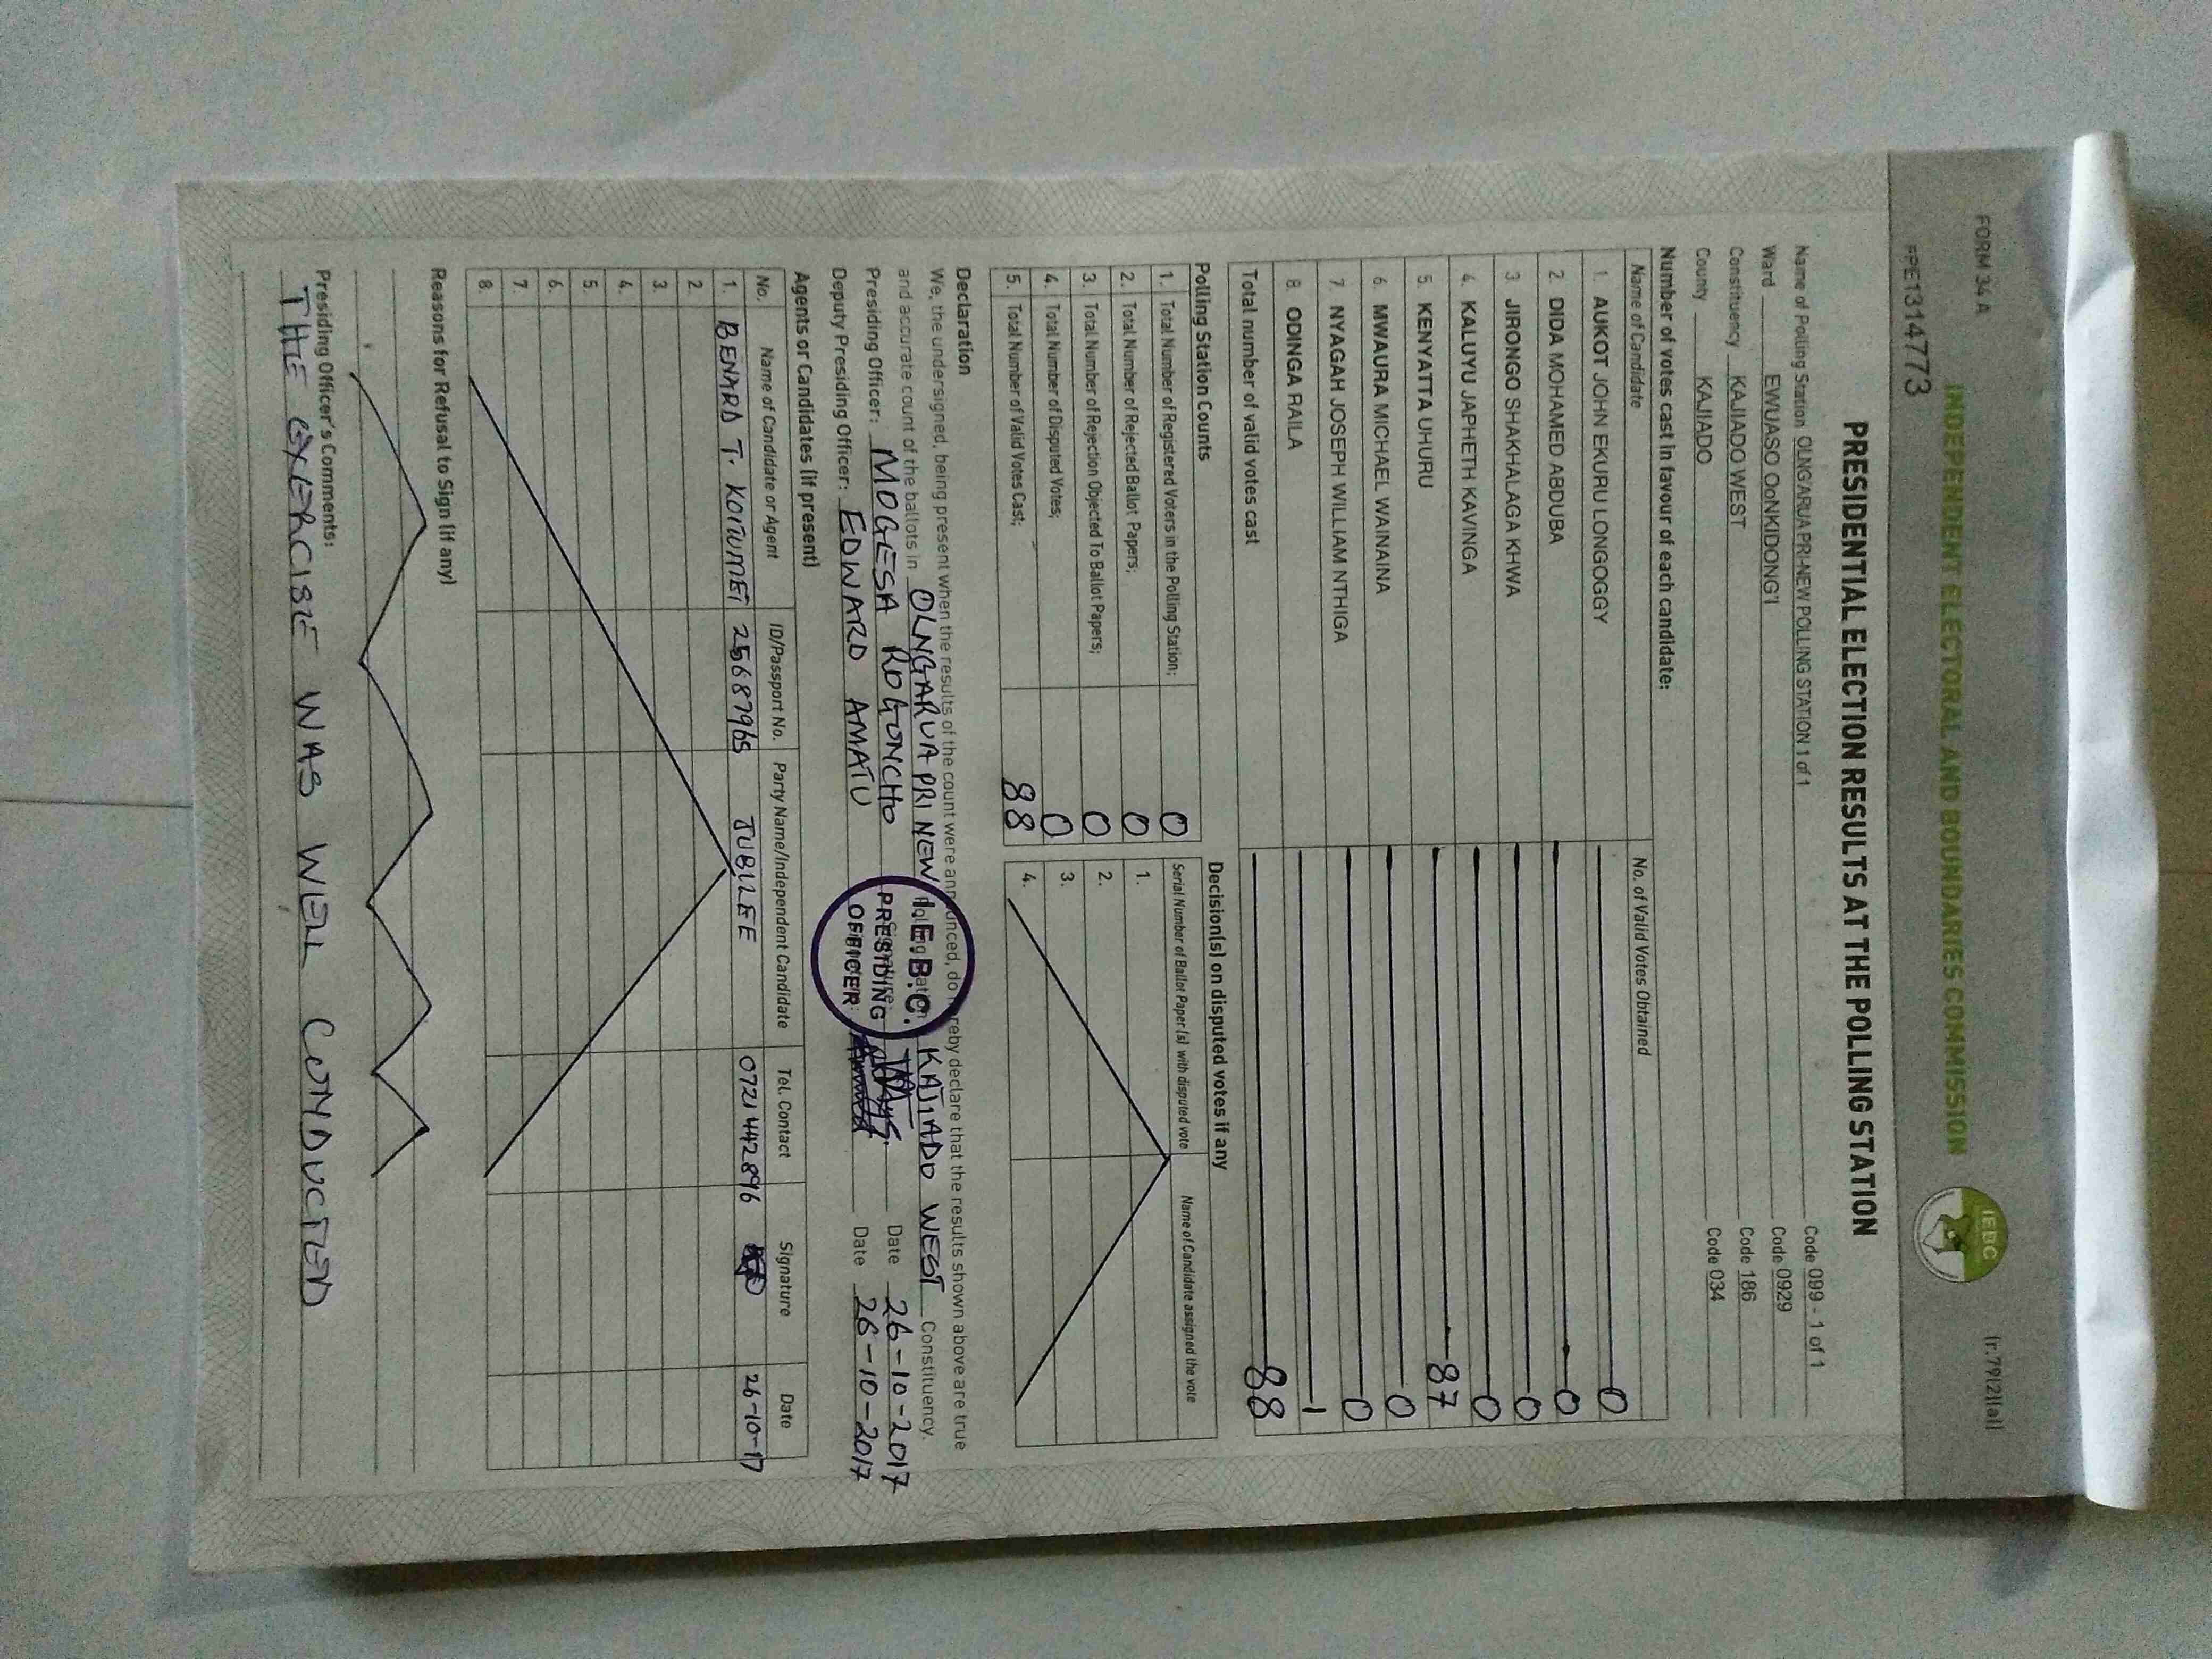 FORM 34 A
(r.79(2)(a))
INDEPENDENT ELECTORAL AND BOUNDARIES COMMISSION
IEBC
PRESIDENTIAL ELECTION RESULTS AT THE POLLING STATION
Name of Polling Station OLNG'ARUA PRI-NEW POLLING STATION 1 of 1 Code 099 - 1 of 1
Ward EWUASO OoNKIDONG'I Code 0929
Constituency KAJIADO WEST Code 186
County KAJIADO Code 034
Number of votes cast in favour of each candidate:
Name of Candidate No. of Valid Votes Obtained
1. AUKOT JOHN EKURU LONGOGGY 0
2. DIDA MOHAMED ABDUBA 0
3. JIRONGO SHAKHALAGA KHWA 0
4. KALUYU JAPHETH KAVINGA 0
5. KENYATTA UHURU 87
6. MWAURA MICHAEL WAINAINA 0
7. NYAGAH JOSEPH WILLIAM NTHIGA 0
8. ODINGA RAILA 1
Total number of valid votes cast 88
Polling Station Counts
1. Total Number of Registered Voters in the Polling Station; 0
2. Total Number of Rejected Ballot Papers; 0
3. Total Number of Rejection Objected To Ballot Papers; 0
4. Total Number of Disputed Votes; 0
5. Total Number of Valid Votes Cast; 88
Decision(s) on disputed votes if any
Serial Number of Ballot Paper (s) with disputed vote Name of Candidate assigned the vote
1.
2.
3.
4.
Declaration
We, the undersigned, being present when the results of the count were announced, do hereby declare that the results shown above are true
and accurate count of the ballots in OLNGARUA PRI NEW Polling Station KAJIADO WEST Constituency.
Presiding Officer: MOGESA ROGONCHO Date 26-10-2017
Deputy Presiding Officer: EDWARD AMATU Date 26-10-2017
I.E.B.C.
PRESIDING
OFFICER
Agents or Candidates (if present)
No. Name of Candidate or Agent ID/Passport No. Party Name/Independent Candidate Tel. Contact Signature Date
1. BENARD T. KOITUMET 25687965 JUBILEE 0721442896 26-10-17
2.
3.
4.
5.
6.
7.
8.
Reasons for Refusal to Sign (if any)
Presiding Officer's Comments:
THE EXERCISE WAS WELL CONDUCTED